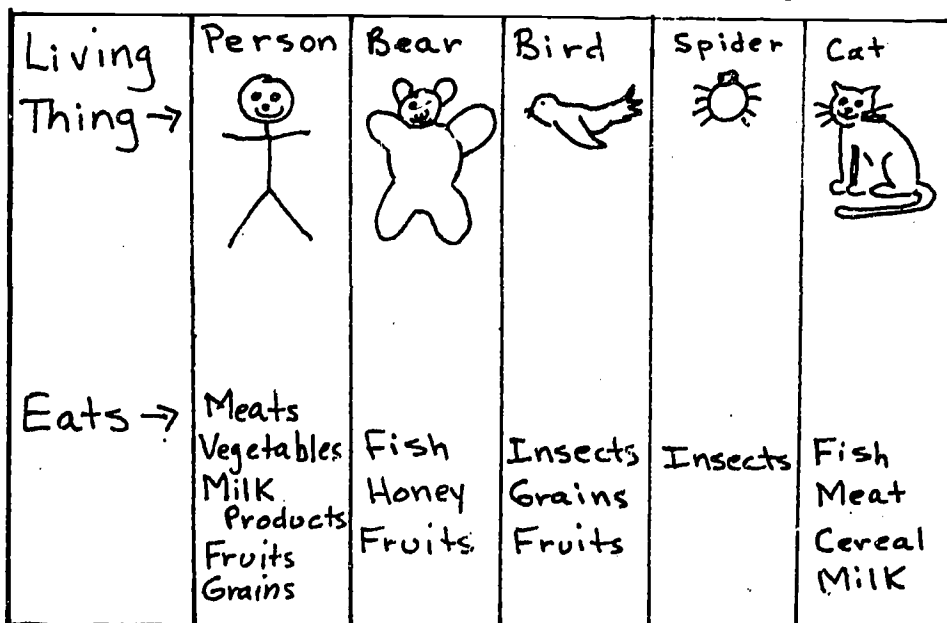 Living
Thing →
Person
Bear
Bird
Spider
Cat
Eats →
Meats
Vegetables
Milk
Products
Fruits
Grains
Fish
Honey
Fruits
Insects
Grains
Fruits
Insects
Fish
Meat
Cereal
Milk